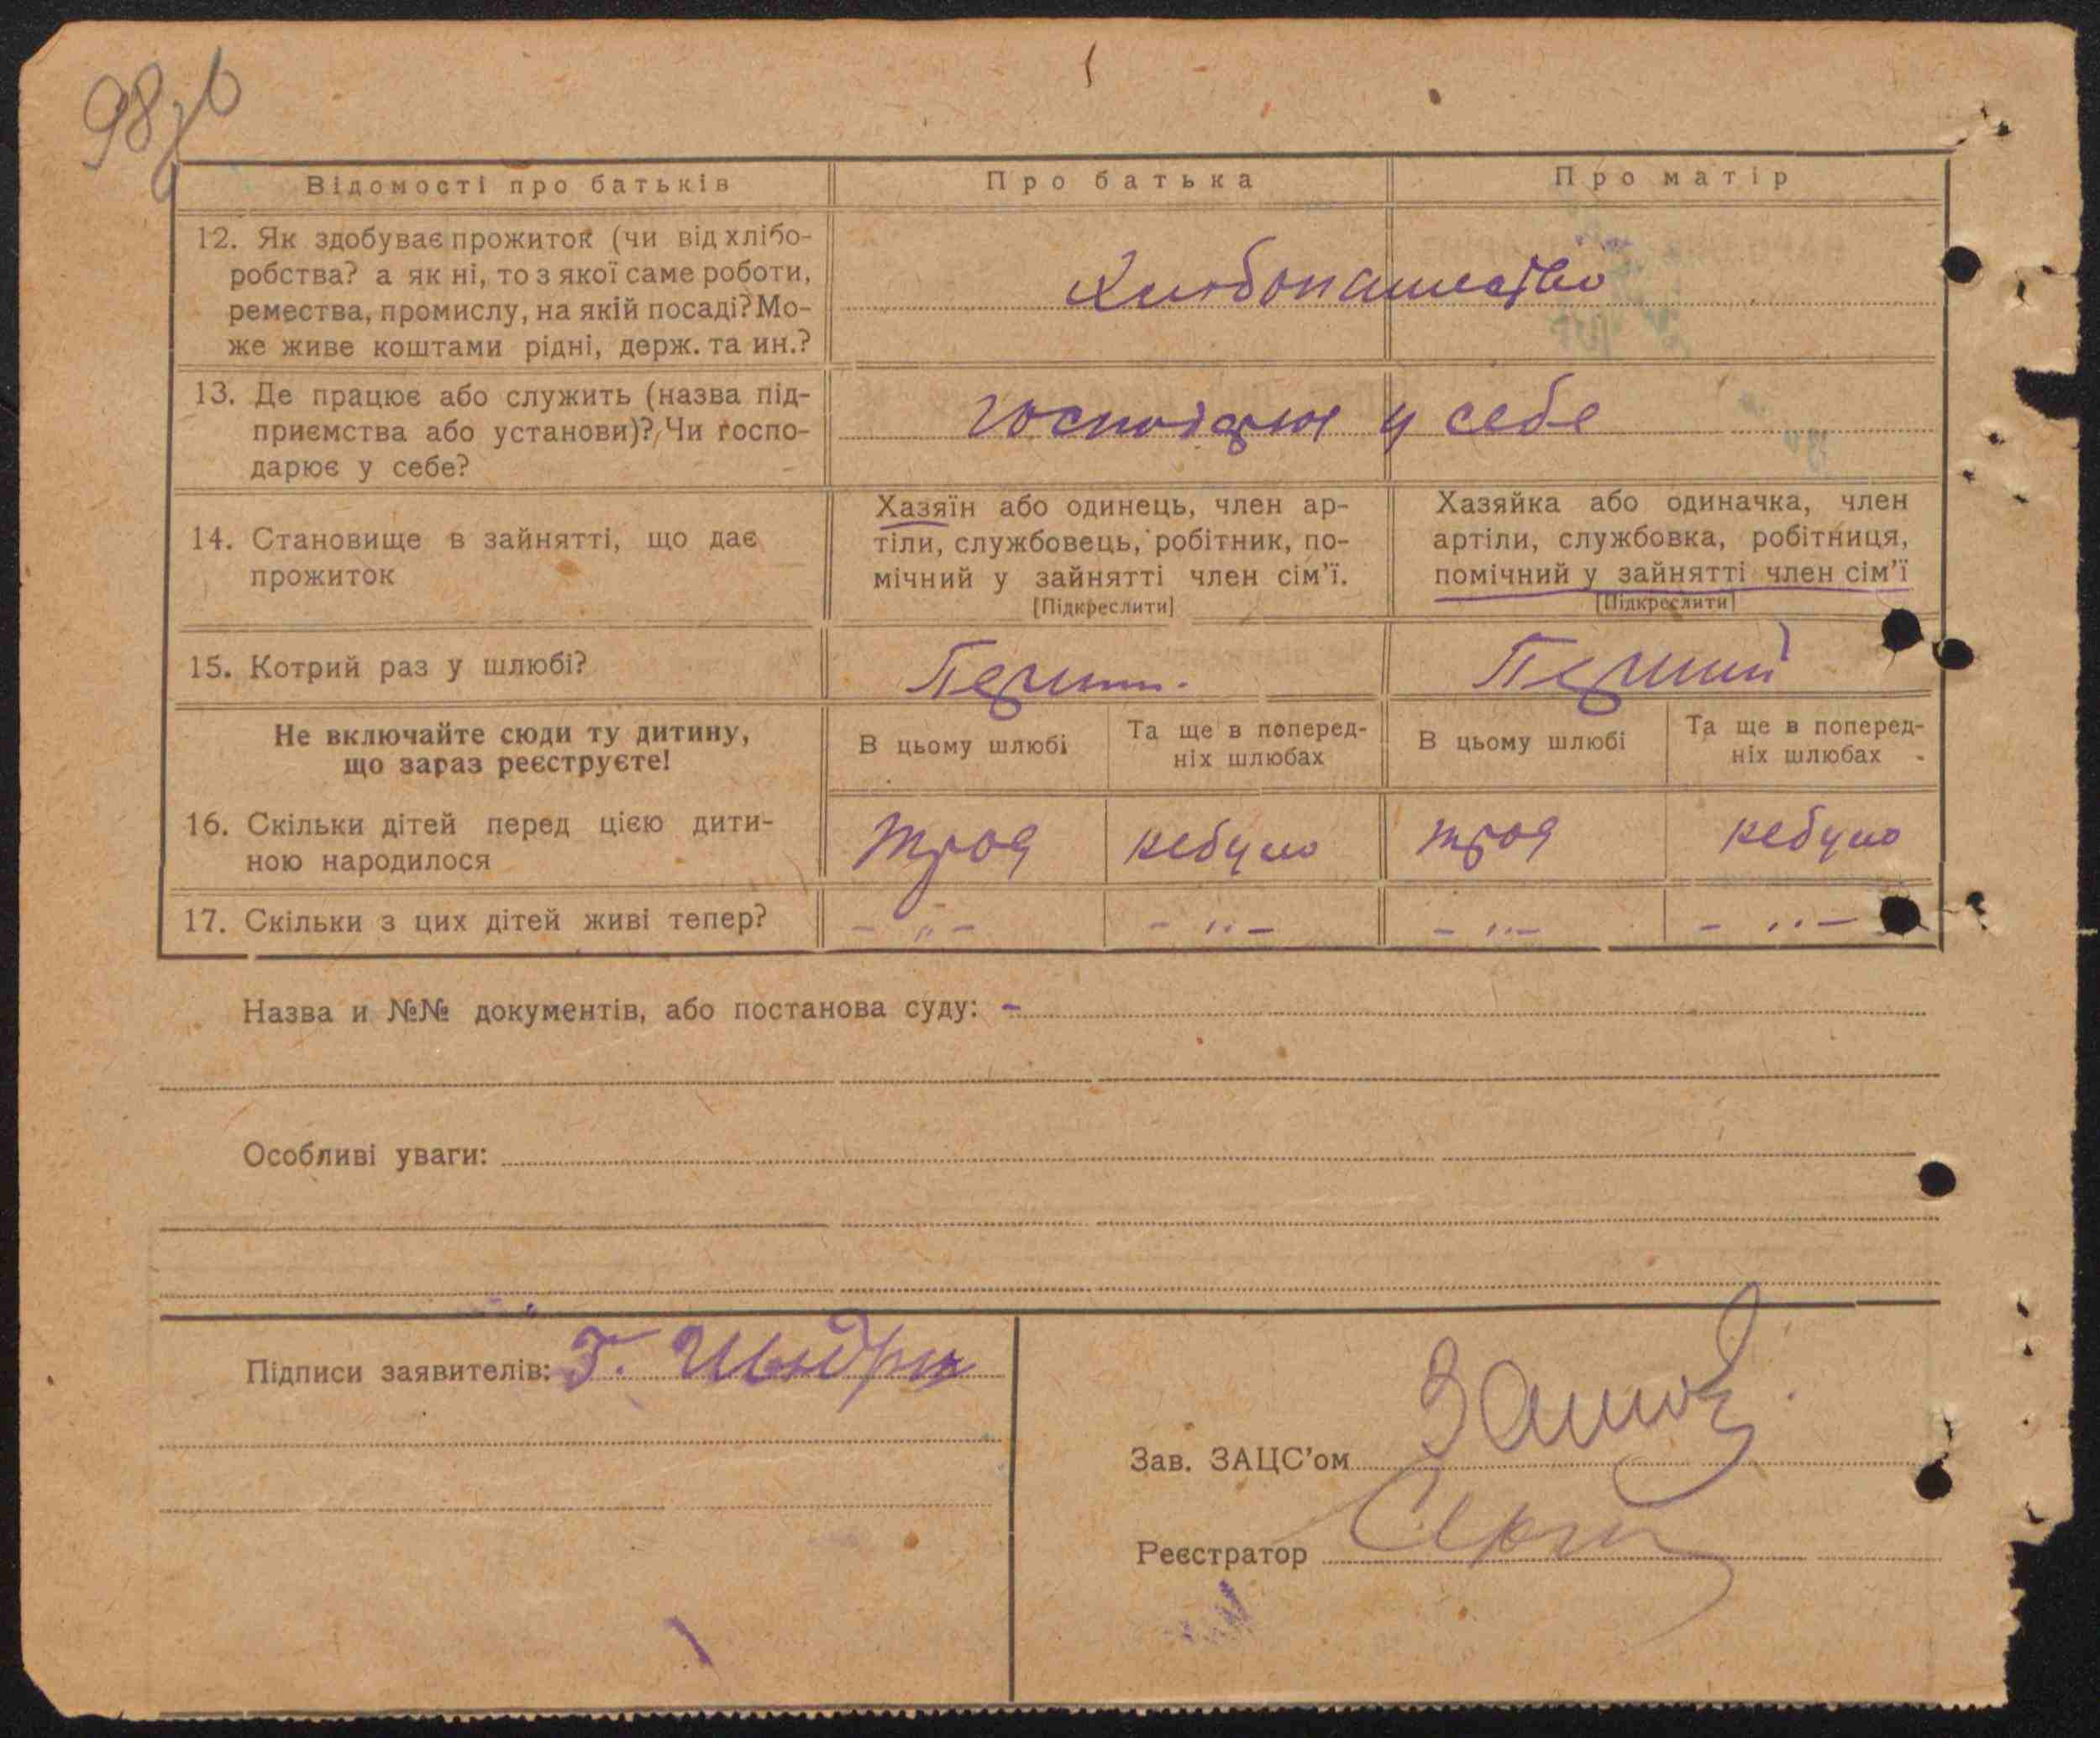 98зв
Відомості про батьків Про батька Про матір
12. Як здобуває прожиток (чи від хлібо-
робства? а як ні, то з якої саме роботи,
ремества, промислу, на якій посаді? Мо-
же живе коштами рідні, держ. та ин.?
Хлібопашество
13. Де працює або служить (назва під-
приємства або установи)? Чи госпо-
дарює у себе?
господарює у себе
14. Становище в зайнятті, що дає
прожиток
Хазяїн або одинець, член ар-
тіли, службовець, робітник, по-
мічний у зайнятті член сім'ї.
[Підкреслити]
Хазяйка або одиначка, член
артіли, службовка, робітниця,
помічний у зайнятті член сім'ї
[Підкреслити]
15. Котрий раз у шлюбі? Перший Перший
Не включайте сюди ту дитину,
що зараз реєструєте!
В цьому шлюбі
Та ще в поперед-
ніх шлюбах
В цьому шлюбі
Та ще в поперед-
ніх шлюбах
16. Скільки дітей перед цією дити-
ною народилося
троя небуло троя небуло
17. Скільки з цих дітей живі тепер? - " - - " - - " - - " -
Назва и №№ документів, або постанова суду: -
Особливі уваги:
Підписи заявителів:
Зав. ЗАЦС'ом
Реєстратор